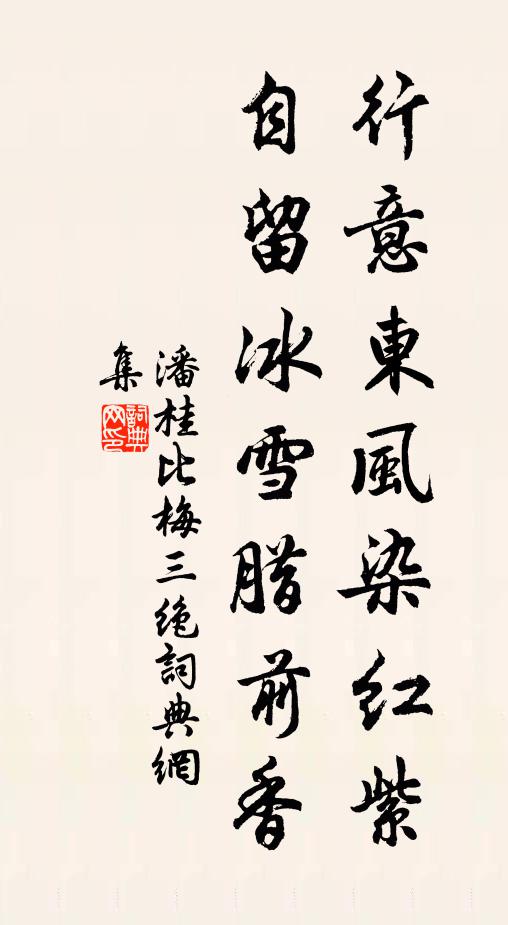 行意東風染红紫
自留冰雪腊前香
潘桂比梅三絶詞典網
集
詞典网印